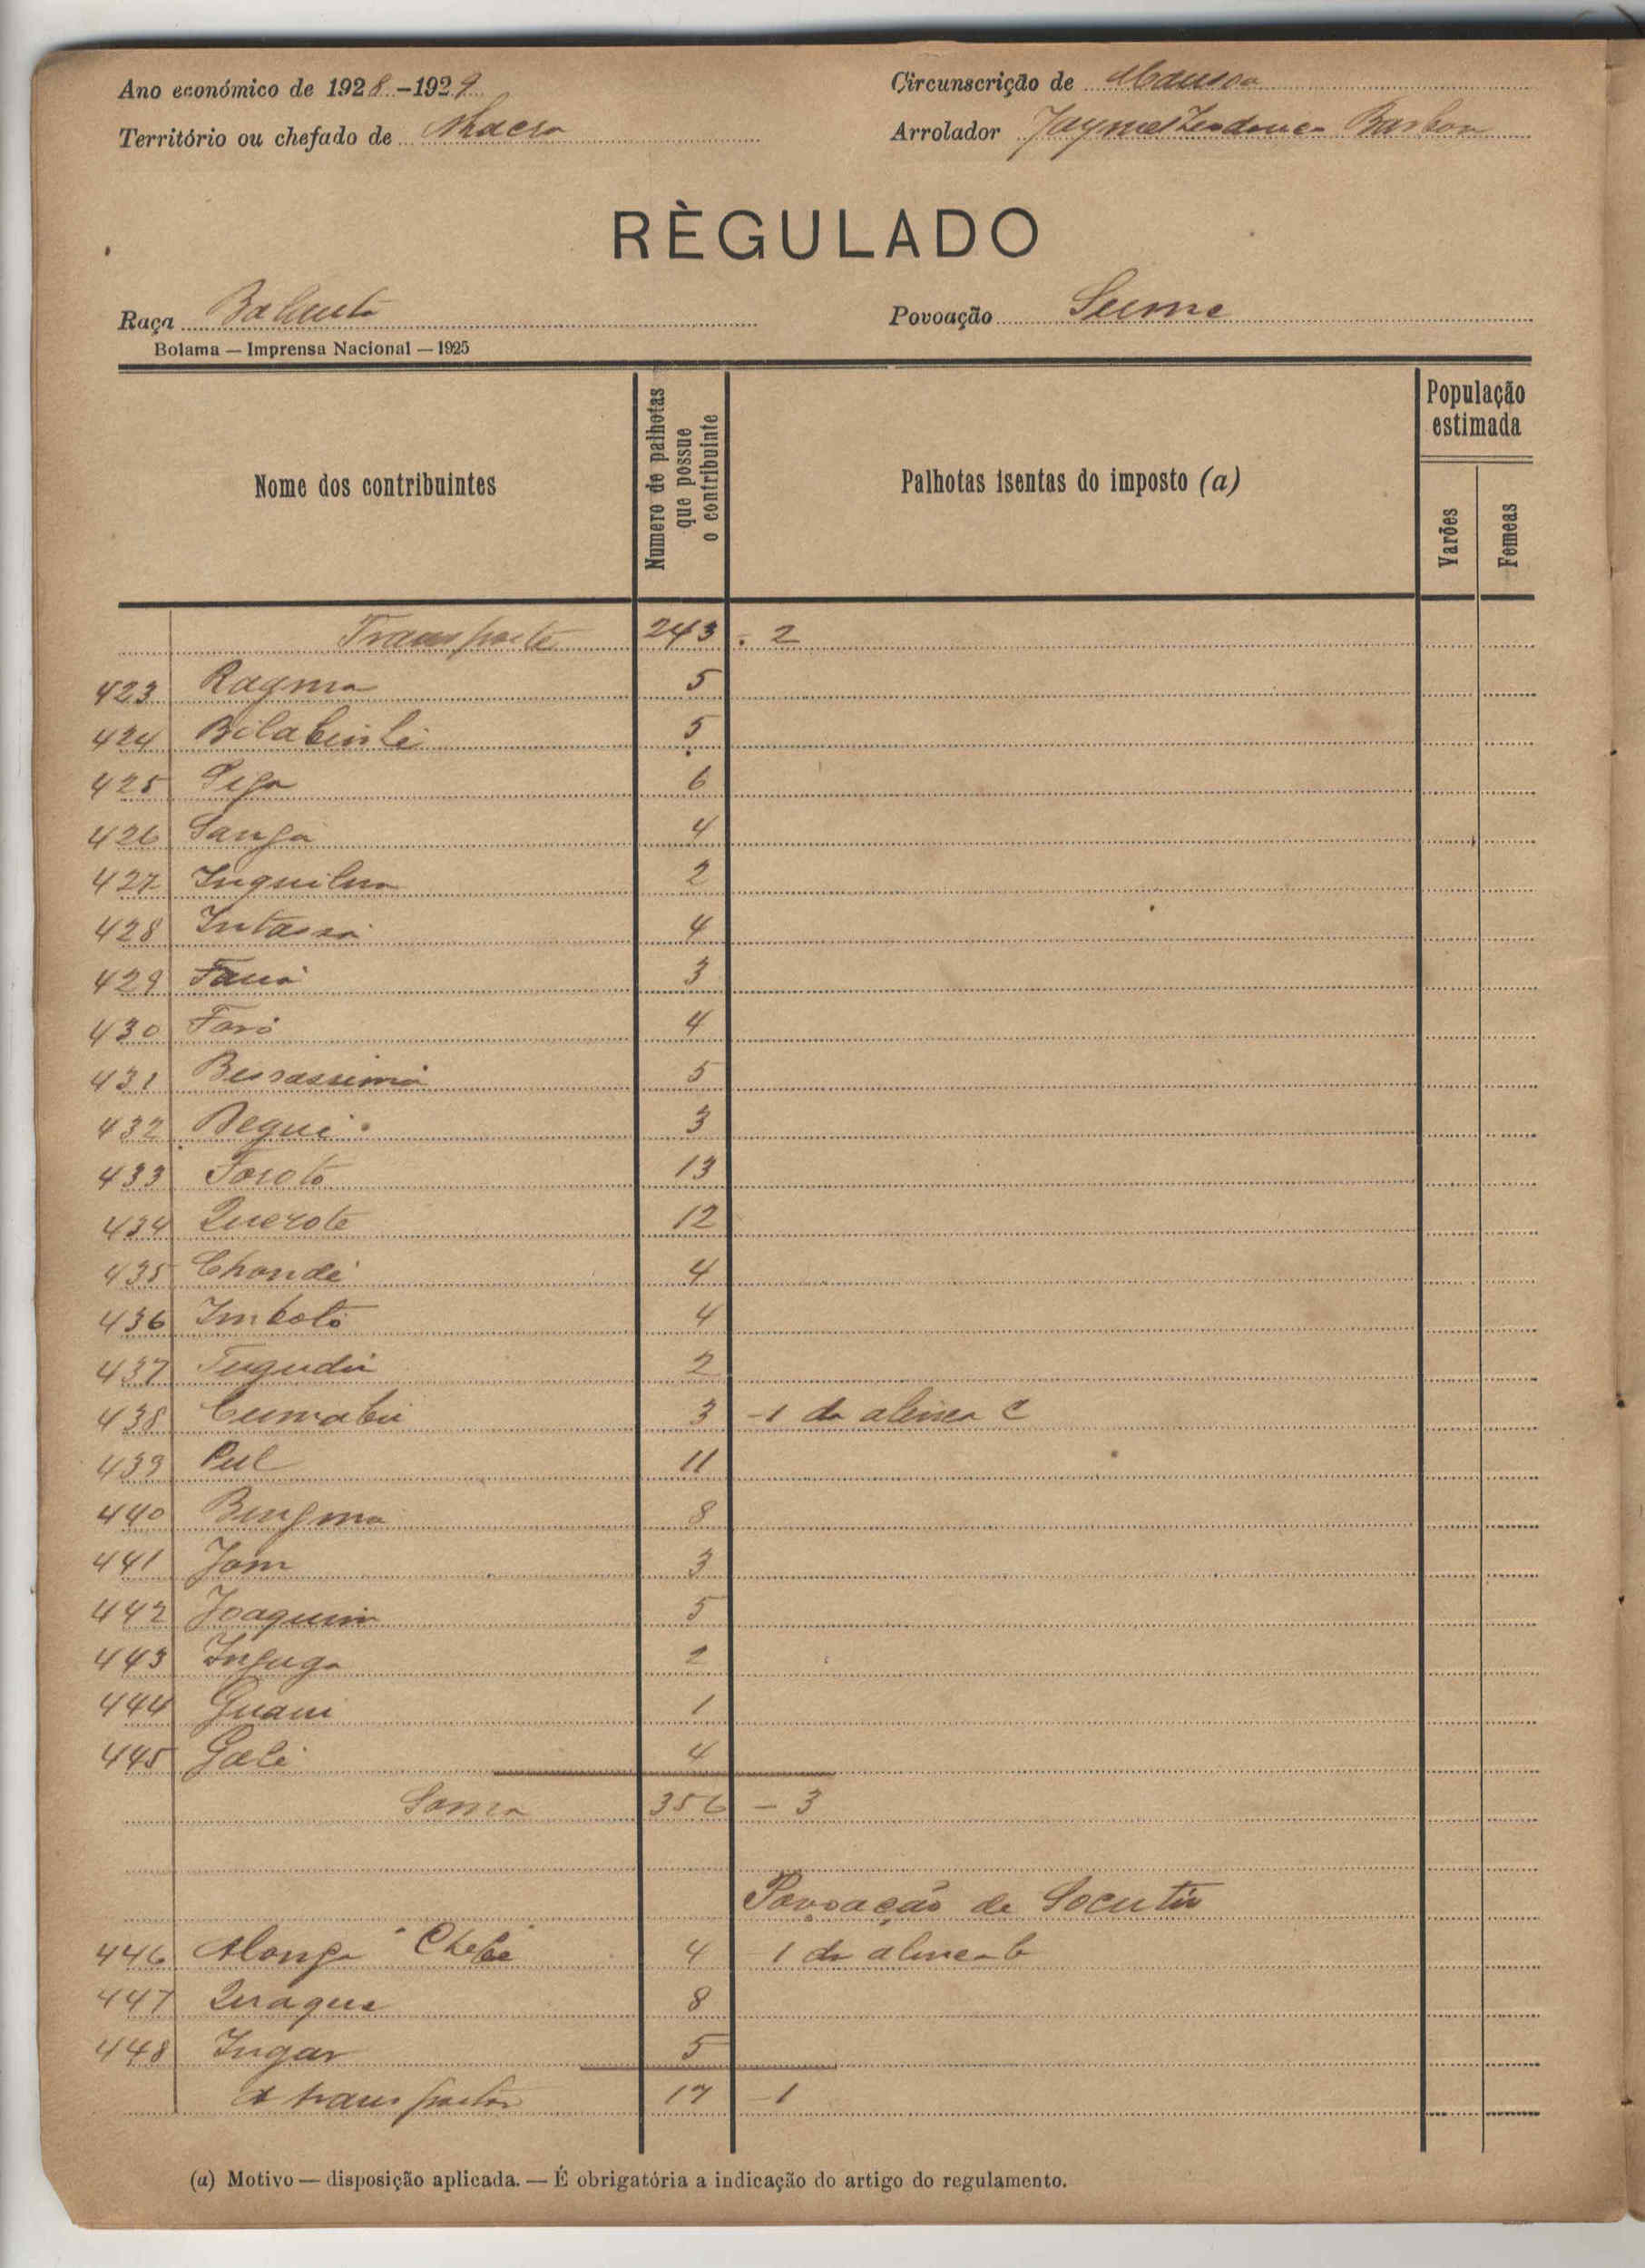 Ano económico de 1928-1929
Circunscrição de Mansoa
Território ou chefado de Nhacra
Arrolador Jayme Barbosa
RÈGULADO
Raça Balanta
Povoação Sume
Bolama — Imprensa Nacional — 1925
Nome dos contribuintes
Numero de palhotas que possue o contribuinte
Palhotas isentas do imposto (a)
População estimada
Varões
Femeas
Transporte 243 . 2
423 Ragma 5
424 5
425 6
426 Sanga 4
427 2
428 Intassá 4
429 3
430 Faró 4
431 5
432 Bequi 3
433 Toroto 13
434 Querote 12
435 Chondé 4
436 Imboto 4
437 Tugudú 2
438 3 -1 da alinea C
439 Pul 11
440 Bungma 8
441 Jom 3
442 Joaquim 5
443 2
444 1
445 4
Soma 356 - 3
Povoação de Socutu
446 4 1 da alinea b
447 Quaque 8
448 Ingar 5
A transportar 17 - 1
(a) Motivo — disposição aplicada. — É obrigatória a indicação do artigo do regulamento.